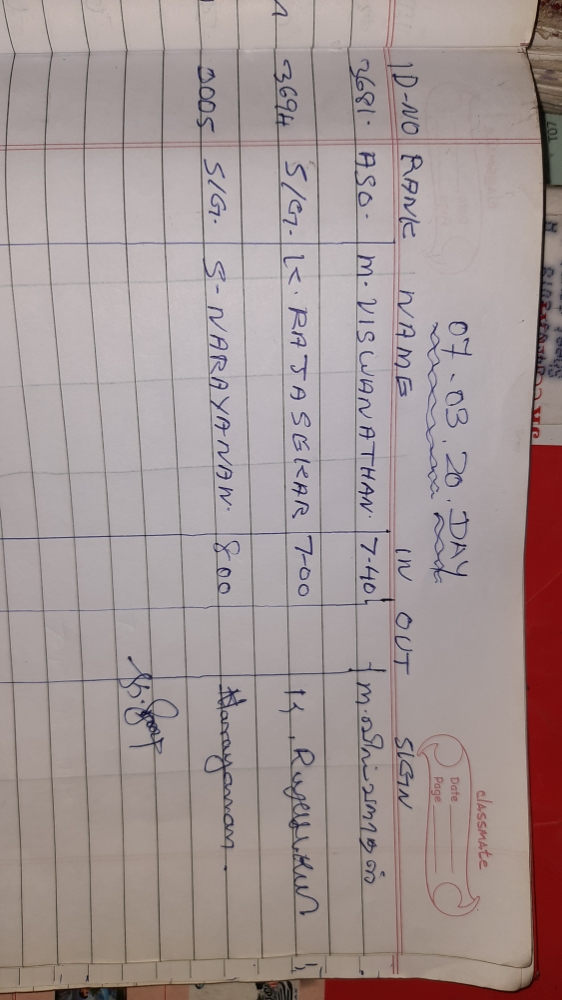 classmate
Date
Page
07.03.20. DAY
ID-NO RANK NAME IN OUT SIGN
3681. ASO. M. VISWANATHAN. 7-40
3694 S/G. K. RAJASEKAR 7-00
3005 S/G. S-NARAYANAN. 8.00 Narayanan.